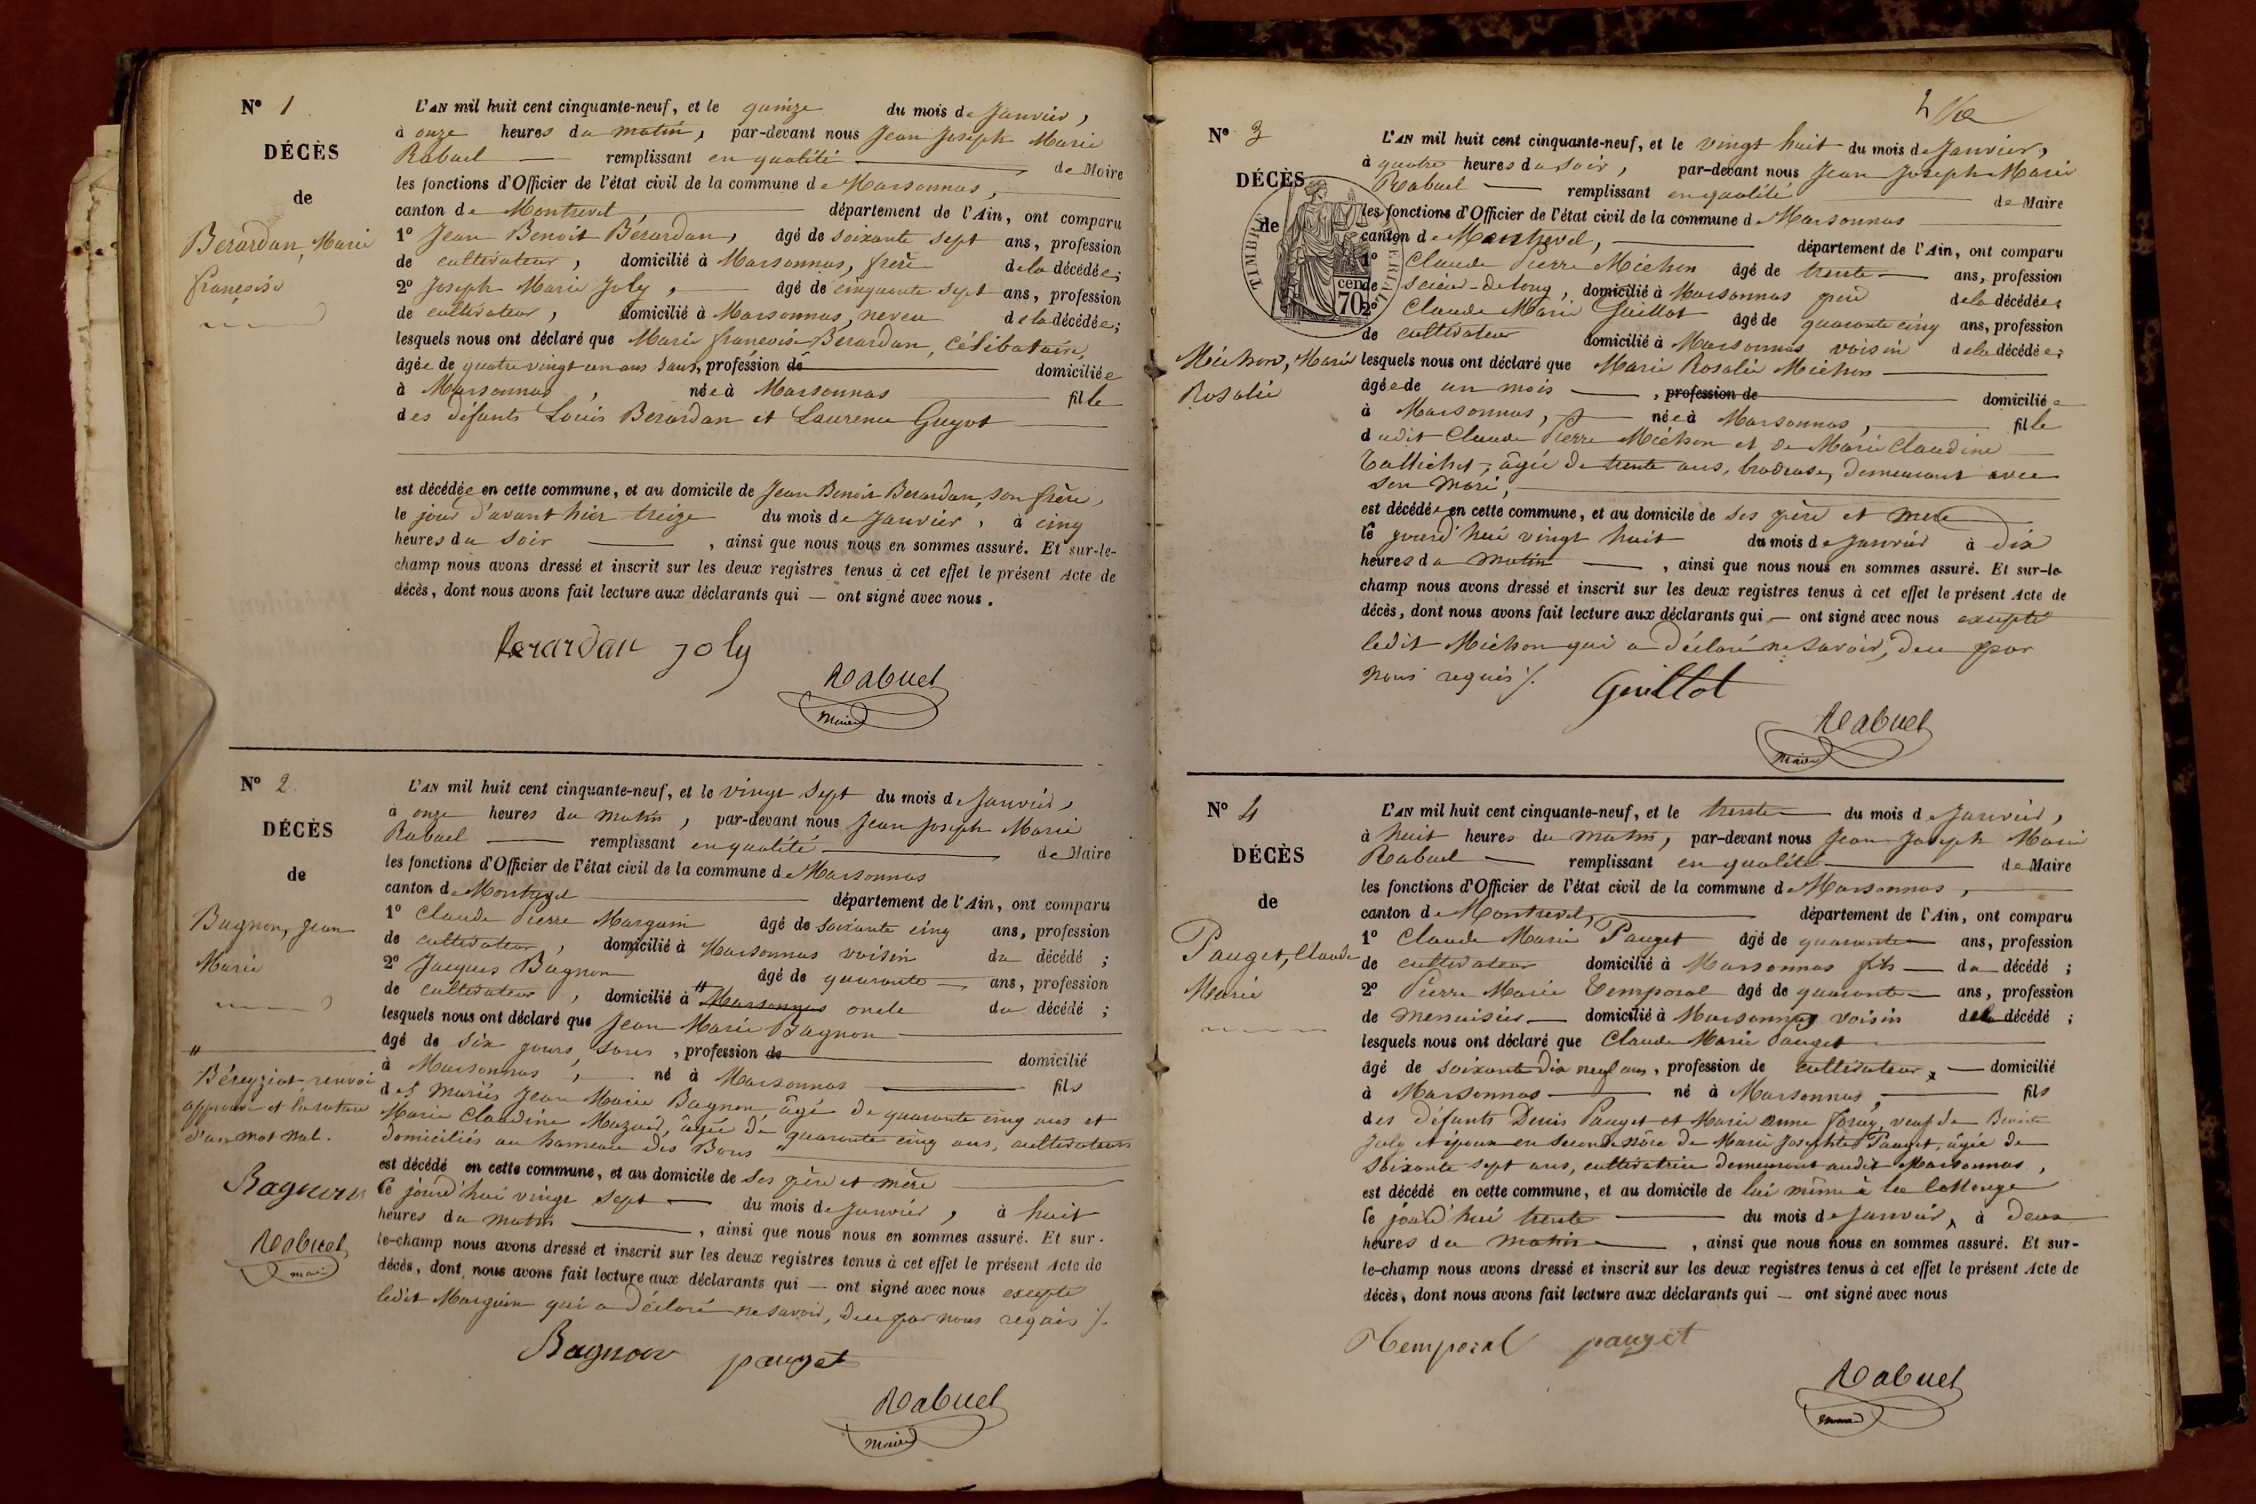 N° 1
DÉCÈS
de
Berardan, Marie
françoise
L'AN mil huit cent cinquante-neuf, et le quinze du mois de Janvier,
à onze heures du matin, par-devant nous Jean Joseph Marie
Rabuel remplissant en qualité de Maire
les fonctions d'Officier de l'état civil de la commune de Marsonnas,
canton de Montrevel département de l'Ain, ont comparu
1° Jean Benoit Bérardan, âgé de soixante sept ans, profession
de cultivateur, domicilié à Marsonnas, frère de la décédée;
2° Joseph Marie Joly, âgé de cinquante sept ans, profession
de cultivateur, domicilié à Marsonnas, neveu de la décédée;
lesquels nous ont déclaré que Marie françoise Berardan, célibataire,
âgée de quatre vingt un ans sans, profession de domiciliée
à Marsonnas, née à Marsonnas fille
des défunts Louis Berardan et Laurence Guyot
est décédée en cette commune, et au domicile de Jean Benoit Berardan, son frère,
le jour d'avant hier treize du mois de Janvier, à cinq
heures du soir, ainsi que nous nous en sommes assuré. Et sur-le-
champ nous avons dressé et inscrit sur les deux registres tenus à cet effet le présent Acte de
décès, dont nous avons fait lecture aux déclarants qui — ont signé avec nous.
Berardan joly
Rabuel
maire
N° 2
DÉCÈS
de
Bagnon, Jean
Marie
"
Béreyziat renvoi
approuvé et la rature
d'un mot nul.
Bagnon
Rabuel
maire
L'AN mil huit cent cinquante-neuf, et le vingt sept du mois de Janvier,
à onze heures du matin, par-devant nous Jean Joseph Marie
Rabuel remplissant en qualité de Maire
les fonctions d'Officier de l'état civil de la commune de Marsonnas
canton de Montrevel département de l'Ain, ont comparu
1° Claude Pierre Marguin âgé de soixante cinq ans, profession
de cultivateur, domicilié à Marsonnas voisin du décédé;
2° Jacques Bagnon âgé de quarante ans, profession
de cultivateur, domicilié à " Marsonnas oncle du décédé;
lesquels nous ont déclaré que Jean Marie Bagnon
âgé de six jours, sans, profession de domicilié
à Marsonnas, né à Marsonnas fils
des mariés Jean Marie Bagnon âgé de quarante cinq ans et
Marie Claudine Mazuir, âgée de quarante cinq ans, cultivateurs
domiciliés au hameau des Bons
est décédé en cette commune, et au domicile de ses père et mère
ce jourd'hui vingt sept du mois de Janvier, à huit
heures du matin, ainsi que nous nous en sommes assuré. Et sur-
le-champ nous avons dressé et inscrit sur les deux registres tenus à cet effet le présent Acte de
décès, dont nous avons fait lecture aux déclarants qui — ont signé avec nous excepté
ledit Marguin qui a déclaré ne savoir, de ce par nous requis ./.
Bagnon pauget
Rabuel
maire
2
N° 3
DÉCÈS
de
TIMBRE
cen
70
Michon, Marie
Rosalie
L'AN mil huit cent cinquante-neuf, et le vingt huit du mois de Janvier,
à quatre heures du soir, par-devant nous Jean Joseph Marie
Rabuel remplissant en qualité de Maire
les fonctions d'Officier de l'état civil de la commune de Marsonnas
canton de Montrevel, département de l'Ain, ont comparu
1° Claude Pierre Michon âgé de trente ans, profession
de scieur-de long, domicilié à Marsonnas père de la décédée;
2° Claude Marie Guillot âgé de quarante cinq ans, profession
de cultivateur domicilié à Marsonnas voisin de la décédée;
lesquels nous ont déclaré que Marie Rosalie Michon
âgée de un mois, profession de domiciliée
à Marsonnas, née à Marsonnas, fille
dudit Claude Pierre Michon et de Marie Claudine
âgée de trente ans, brodeuse, demeurant avec
son mari,
est décédée en cette commune, et au domicile de ses père et mère
ce jourd'hui vingt huit du mois de Janvier à dix
heures du matin, ainsi que nous nous en sommes assuré. Et sur-le-
champ nous avons dressé et inscrit sur les deux registres tenus à cet effet le présent Acte de
décès, dont nous avons fait lecture aux déclarants qui — ont signé avec nous excepté
ledit Michon qui a déclaré ne savoir, de ce par
nous requis ./.
Guillot
Rabuel
maire
N° 4
DÉCÈS
de
Pauget, Claude
Marie
L'AN mil huit cent cinquante-neuf, et le trente du mois de Janvier,
à huit heures du matin, par-devant nous Jean Joseph Marie
Rabuel remplissant en qualité de Maire
les fonctions d'Officier de l'état civil de la commune de Marsonnas,
canton de Montrevel, département de l'Ain, ont comparu
1° Claude Marie Pauget âgé de quarante ans, profession
de cultivateur domicilié à Marsonnas fils du décédé;
2° Pierre Marie Temporal âgé de quarante ans, profession
de menuisier domicilié à Marsonnas voisin du décédé;
lesquels nous ont déclaré que Claude Marie Pauget
âgé de soixante dix neuf ans, profession de cultivateur, domicilié
à Marsonnas né à Marsonnas, fils
des défunts Denis Pauget et Marie Anne foray, veuf de Benoite
Joly et époux en seconde nôce de Marie Josephte Pauget, âgée de
soixante sept ans, cultivatrice demeurant audit Marsonnas,
est décédé en cette commune, et au domicile de lui même à la
ce jourd'hui trente du mois de Janvier, à deux
heures du matin, ainsi que nous nous en sommes assuré. Et sur-
le-champ nous avons dressé et inscrit sur les deux registres tenus à cet effet le présent Acte de
décès, dont nous avons fait lecture aux déclarants qui — ont signé avec nous
Temporal pauget
Rabuel
maire